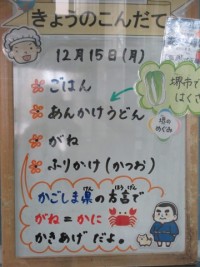 きょうのこんだて
12月15日(月)
ごはん
あんかけうどん
がね
ふりかけ(かつお)
堺市で
はくさ
堺の
めぐみ
かごしま県の方言で
げん
ほうげん
がね=かに
かきあげだよ。